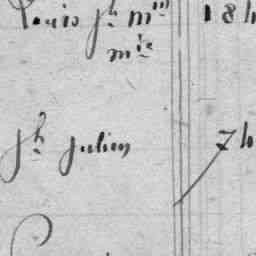 Louis jh mm 18 h
mie
jh julien 7 h